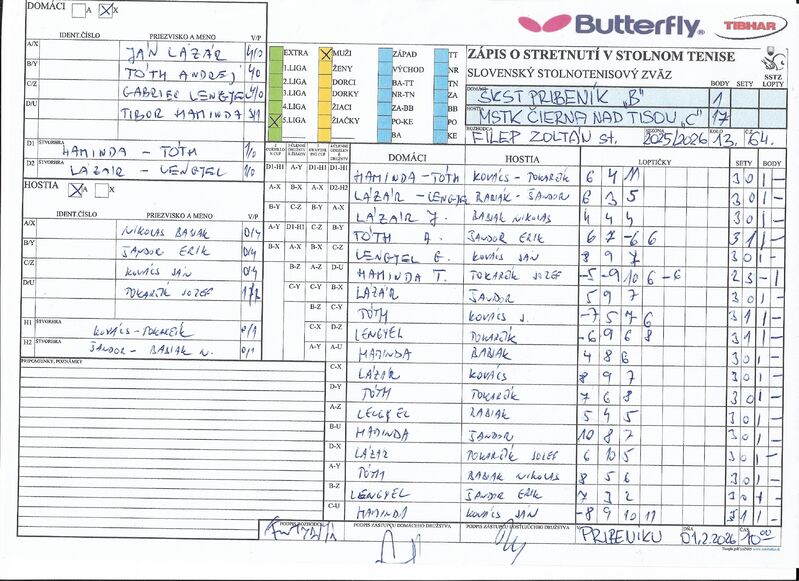 DOMÁCI A X
IDENT.ČÍSLO PRIEZVISKO A MENO V/P
A/X JÁN LÁZÁR 4/0
B/Y TÓTH ANDREJ 4/0
C/Z GABRIEL LENGYEL 4/0
D/U TIBOR HAMINDA 3/1
D1 ŠTVORHRA HAMINDA - TÓTH 1/0
D2 ŠTVORHRA LÁZÁR - LENGYEL 1/0
HOSTIA A X
IDENT.ČÍSLO PRIEZVISKO A MENO V/P
A/X NIKOLAS BABIAK 0/4
B/Y ŠÁNDOR ERIK 0/4
C/Z KOVÁCS JÁN 0/4
D/U TOKARČÍK JOZEF
H1 ŠTVORHRA KOVÁCS - TOKARČÍK 0/1
H2 ŠTVORHRA ŠÁNDOR - BABIAK N. 0/1
PRIPOMIENKY, POZNÁMKY
Butterfly
TIBHAR
EXTRA MUŽI ZÁPAD TT
1.LIGA ŽENY VÝCHOD NR
2.LIGA DORCI BA-TT TN
3.LIGA DORKY NR-TN ZA
4.LIGA ŽIACI ZA-BB BB
5.LIGA ŽIAČKY PO-KE PO
BA KE
ZÁPIS O STRETNUTÍ V STOLNOM TENISE
SLOVENSKÝ STOLNOTENISOVÝ ZVÄZ
SSTZ
BODY SETY LOPTY
DOMÁCI ŠKST PRIBENÍK „B" 1
HOSTIA MSTK ČIERNA NAD TISOU „C" 17
ROZHODCA FILEP ZOLTÁN st. SEZÓNA 2025/2026 KOLO 13. Č.Z. 64.
DOMÁCI HOSTIA LOPTIČKY SETY BODY
HAMINDA - TÓTH KOVÁCS - TOKARČÍK 6 4 11 3 0 1 -
LÁZÁR - LENGYEL BABIAK - ŠÁNDOR 6 3 5 3 0 1 -
LÁZÁR J. BABIAK NIKOLAS 4 4 4 3 0 1 -
TÓTH A. ŠÁNDOR ERIK 6 7 -6 6 3 1 1 -
LENGYEL G. KOVÁCS JÁN 8 9 7 3 0 1 -
HAMINDA T. TOKARČÍK JOZEF -5 -9 10 6 -6 2 3 - 1
LÁZÁR ŠÁNDOR 5 9 7 3 0 1 -
TÓTH KOVÁCS J. -7 5 7 6 3 1 1 -
LENGYEL TOKARČÍK -6 9 6 8 3 1 1 -
HAMINDA BABIAK 4 8 6 3 0 1 -
LÁZÁR KOVÁCS 8 9 7 3 0 1 -
TÓTH TOKARČÍK 7 6 8 3 0 1 -
LENGYEL BABIAK 5 4 5 3 0 1 -
HAMINDA ŠÁNDOR 10 8 7 3 0 1 -
LÁZÁR TOKARČÍK JOZEF 6 10 5 3 0 1 -
TÓTH BABIAK NIKOLAS 8 5 6 3 0 1 -
LENGYEL ŠÁNDOR ERIK 7 3 2 3 0 1 -
HAMINDA KOVÁCS JÁN -8 9 10 11 3 1 1 -
PODPIS ROZHODCU PODPIS ZÁSTUPCU DOMÁCEHO DRUŽSTVA PODPIS ZÁSTUPCU HOSŤUJÚCEHO DRUŽSTVA V PRIBENIKU DŇA 01.2.2026 ČAS 10:00